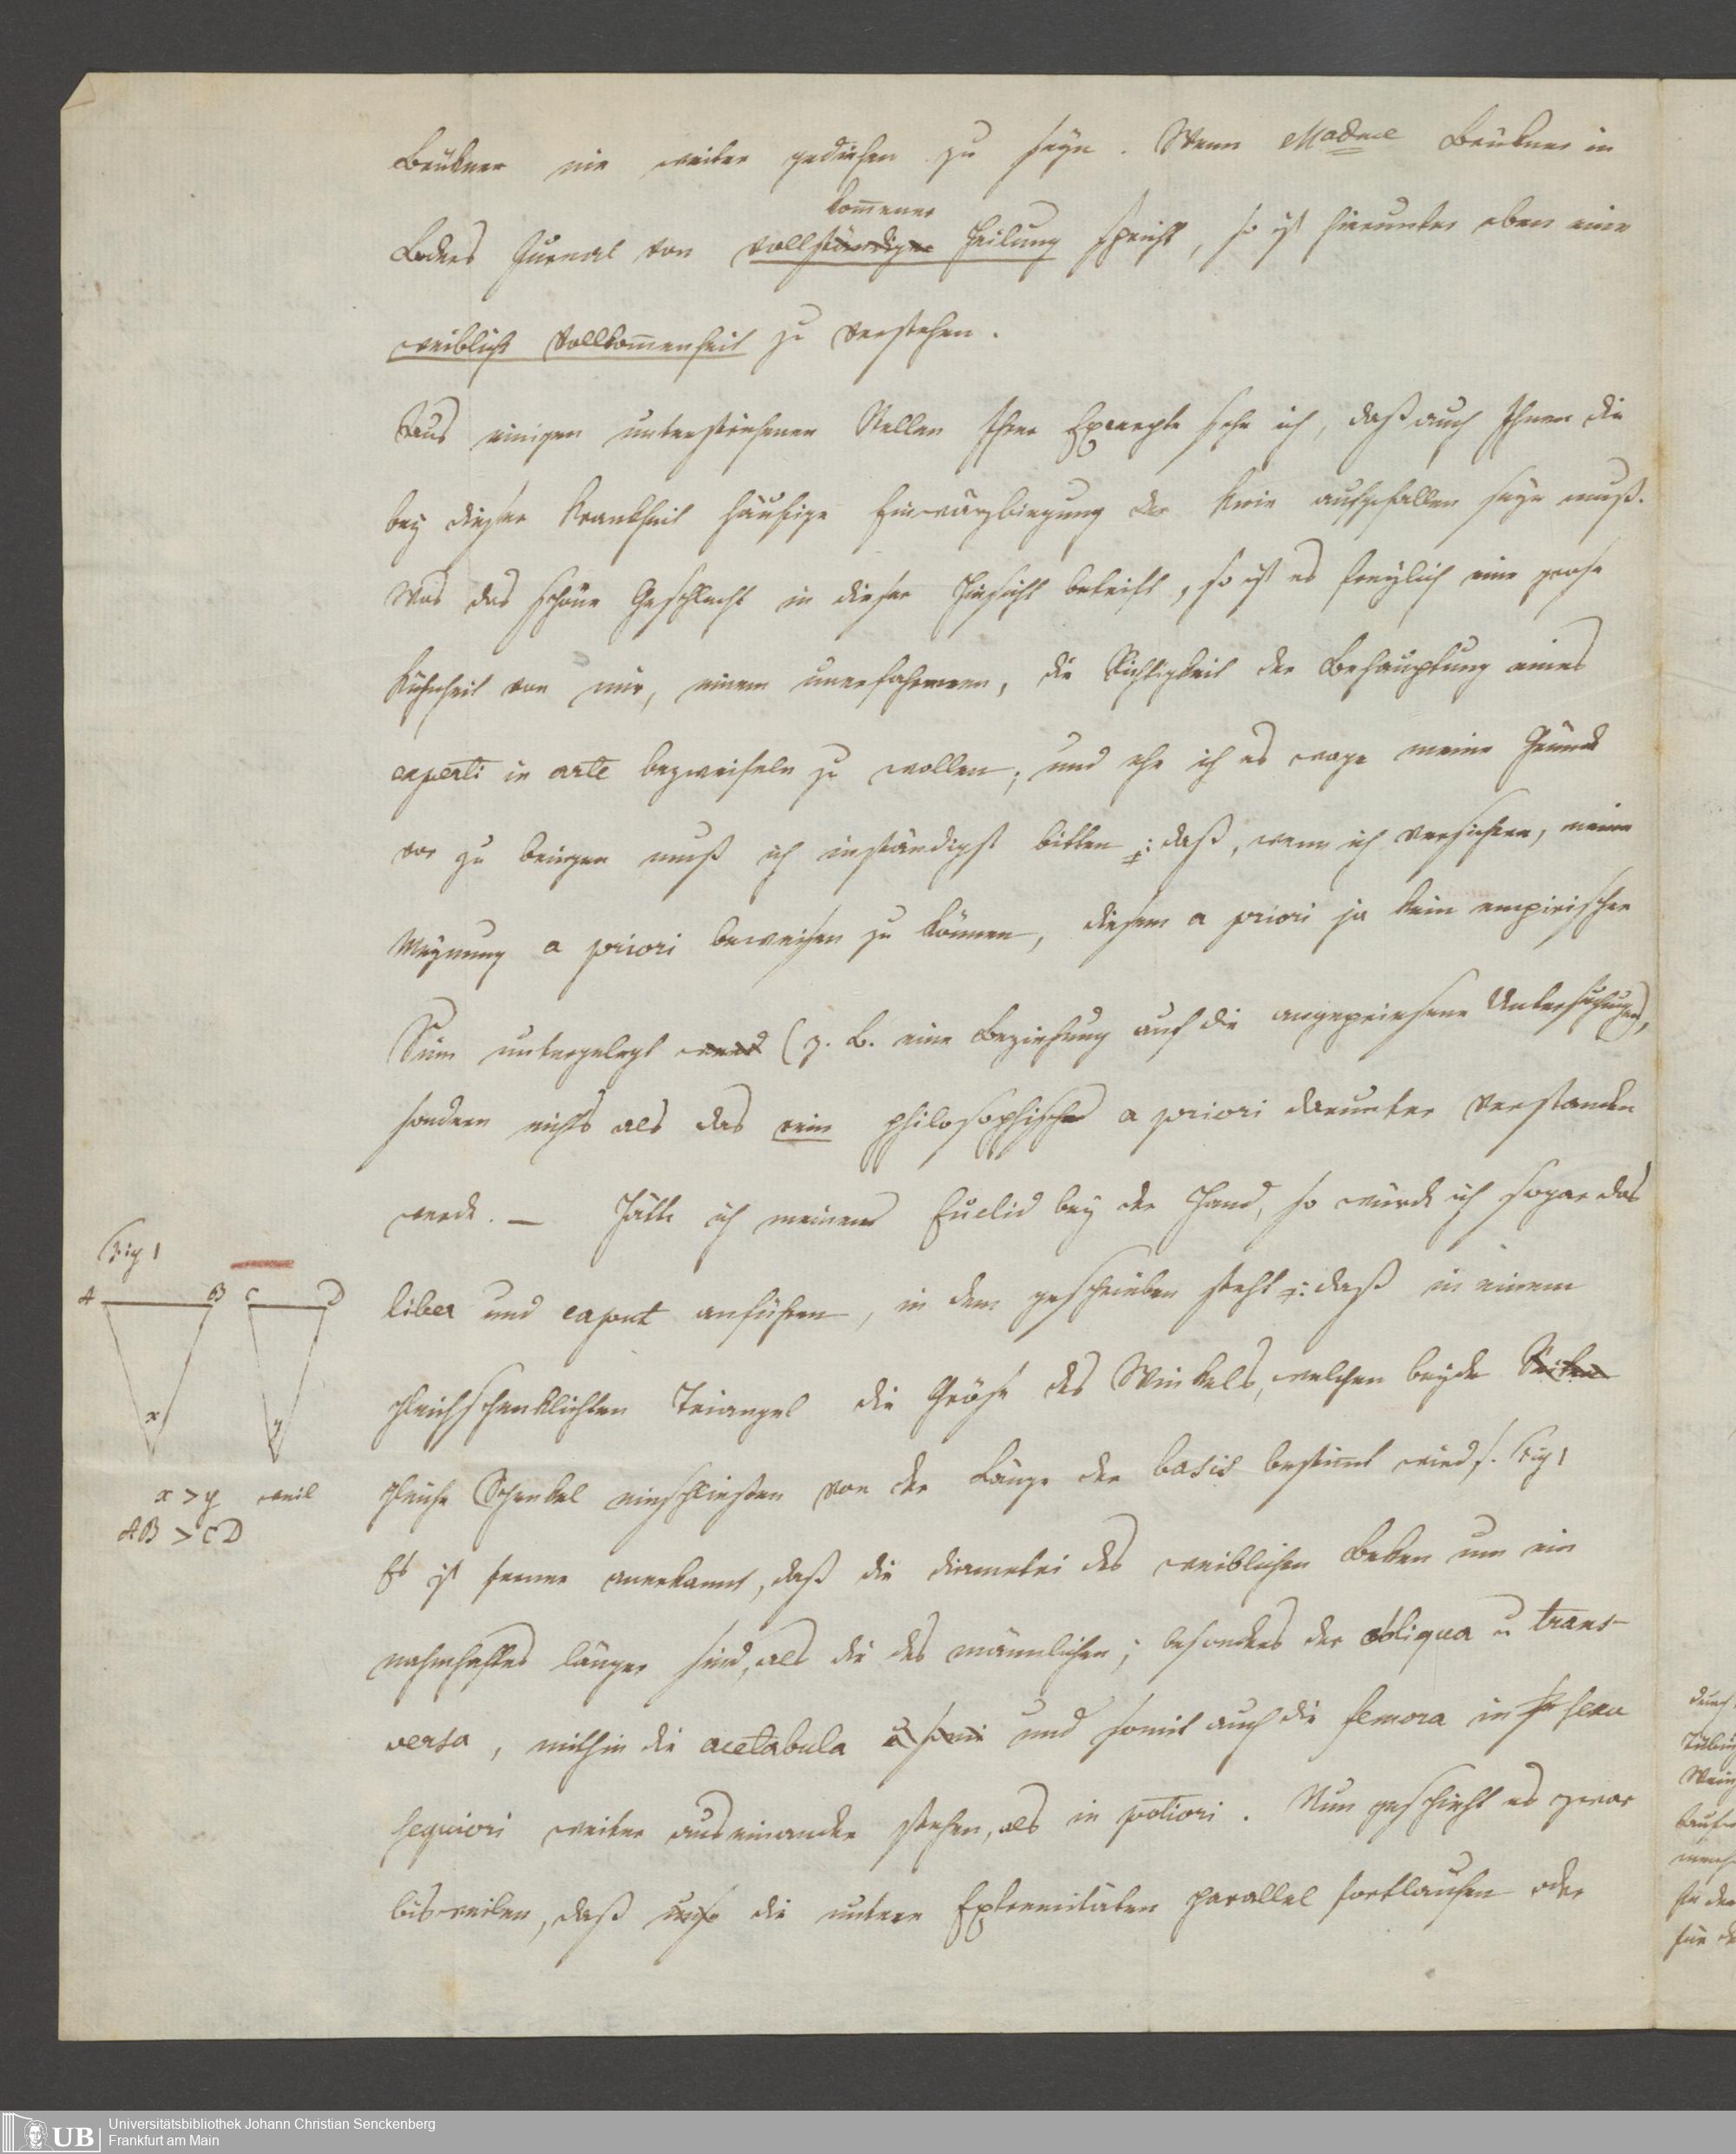 Brükner nie weiter gediehen zu seyn. Wenn Madme Brükner in
kom̄ener
Loders Jurnal von vollständiger Heilung spricht, so ist hierunter eben eine
weiblich Vollkom̄enheit zu verstehen.
Aus einigen unterstrichenen Stellen Ihrer Excerpte sehe ich, daß auch Ihnen die
bey dieser Krankheit häufige Einwärzbiegung der Knie aufgefallen seyn muß.
Was das schöne Geschlecht in dieser Hinsicht betrifft, so ist es freylich eine grose
Kühnheit von mir, einem unerfahrenen, die Richtigkeit der Behauptung eines
experti in arte bezweifeln zu wollen; und ehe ich es wage meine Gründe
vor zu bringen muß ich inständigst bitten: daß, wenn ich versichere, meine
Meynung a priori beweisen zu können, diesem a priori ja kein empirischer
Sinn untergelegt werd (z. B. eine Beziehung auf die angepriesene Untersuchung),
sondern nichts als das rein philosophische a priori darunter verstanden
werde. — Hätte ich meinen Euclid bey der Hand, so würde ich sogar das
liber und caput anführen, in dem geschrieben steht: daß in einem
gleichschenklichten Triangel die Gröse des Winkels, welchen beyde Seiten
gleiche Schenkel einschliesen von der Länge der basis bestim̄t wird s. Fig 1
Es ist ferner anerkannt, daß die diametri des weiblichen Beken um ein
nahmhaftes länger sind, als die des männlichen; besonders der obliqua u trans-
versa, mithin die acetabula u somi und somit auch die femora in se sexu
sequiori weiter aus einander stehen, als in potiori. Nun geschieht es zwar
bisweilen, daß die untere Extremitäten parallel fortlaufen oder
Fig 1
A B C D
x y
x > y weil
AB > CD
durch
für de
UB
Universitätsbibliothek Johann Christian Senckenberg
Frankfurt am Main